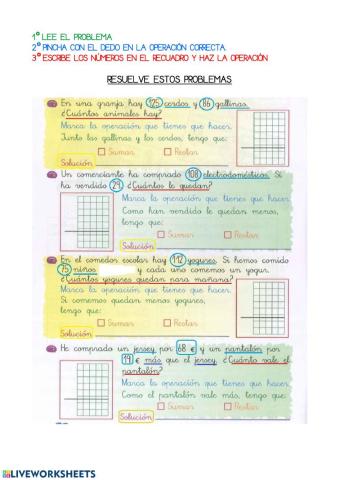 1º LEE EL PROBLEMA
2º PINCHA CON EL DEDO EN LA OPERACIÓN CORRECTA.
3º ESCRIBE LOS NÚMEROS EN EL RECUADRO Y HAZ LA OPERACIÓN
RESUELVE ESTOS PROBLEMAS
En una granja hay 125 cerdos y 86 gallinas.
¿Cuántos animales hay?
Marca la operación que tienes que hacer.
Junto las gallinas y los cerdos, tengo que:
Sumar Restar
Solución
Un comerciante ha comprado 108 electrodomésticos. Si
ha vendido 29 ¿Cuántos le quedan?
Marca la operación que tienes que hacer.
Como han vendido le quedan menos,
tengo que:
Sumar Restar
Solución
En el comedor escolar hay 112 yogures. Si hemos comido
75 niños y cada uno comemos un yogur.
¿Cuántos yogures quedan para mañana?
Marca la operación que tienes que hacer.
Si comemos quedan menos yogures,
tengo que:
Sumar Restar
Solución
He comprado un jersey por 68 € y un pantalón por
19 € más que el jersey. ¿Cuánto vale el
pantalón?
Marca la operación que tienes que hacer.
Como el pantalón vale más, tengo que:
Sumar Restar
Solución
LIVEWORKSHEETS